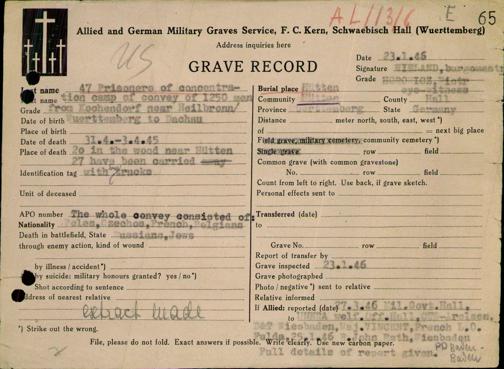 AL/13/6 E 65
Allied and German Military Graves Service, F. C. Kern, Schwaebisch Hall (Wuerttemberg)
Address inquiries here
US
GRAVE RECORD
Date 23.1.46
Signature
Grade
eye-witness
name 47 Prisoners of concentra-
name tion camp of convey of 1250 men
Grade from Kochendorf near Heilbronn/
Date of birth Wuerttemberg to Dachau
Place of birth
Date of death 31.4.-3.4.45
Place of death 20 in the wood near Hütten
27 have been carried away
Identification tag with trucks
Unit of deceased
APO number The whole convey consisted of
Nationality Poles, Czechos, French, Belgians
Death in battlefield, State Russians, Jews
through enemy action, kind of wound
by illness / accident*)
by suicide: military honours granted? yes / no*)
Shot according to sentence
Address of nearest relative
extract made
*) Strike out the wrong.
Burial place Hütten
Community County Hall
Province State Germany
Distance meter north, south, east, west*)
of = next big place
Field grave, military cemetery, community cemetery*)
Single grave row field
Common grave (with common gravestone)
No. row field
Count from left to right. Use back, if grave sketch.
Personal effects sent to
Transferred (date)
to
Grave No. row field
Report of transfer by
Grave inspected 23.1.46
Grave photographed
Photo / negative*) sent to relative
Relative informed
If Allied: reported (date) Mil.Govt.Hall,
to
Wiesbaden, Maj. VINCENT, French L.O.
File, please do not fold. Exact answers if possible. Write clearly. Use new carbon paper.
Full details of report given.